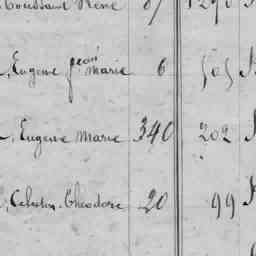 Toussaint René 87 1290
, Eugene jean Marie 6 505
, Eugene Marie 340 202
, Celestin Théodore 20 99